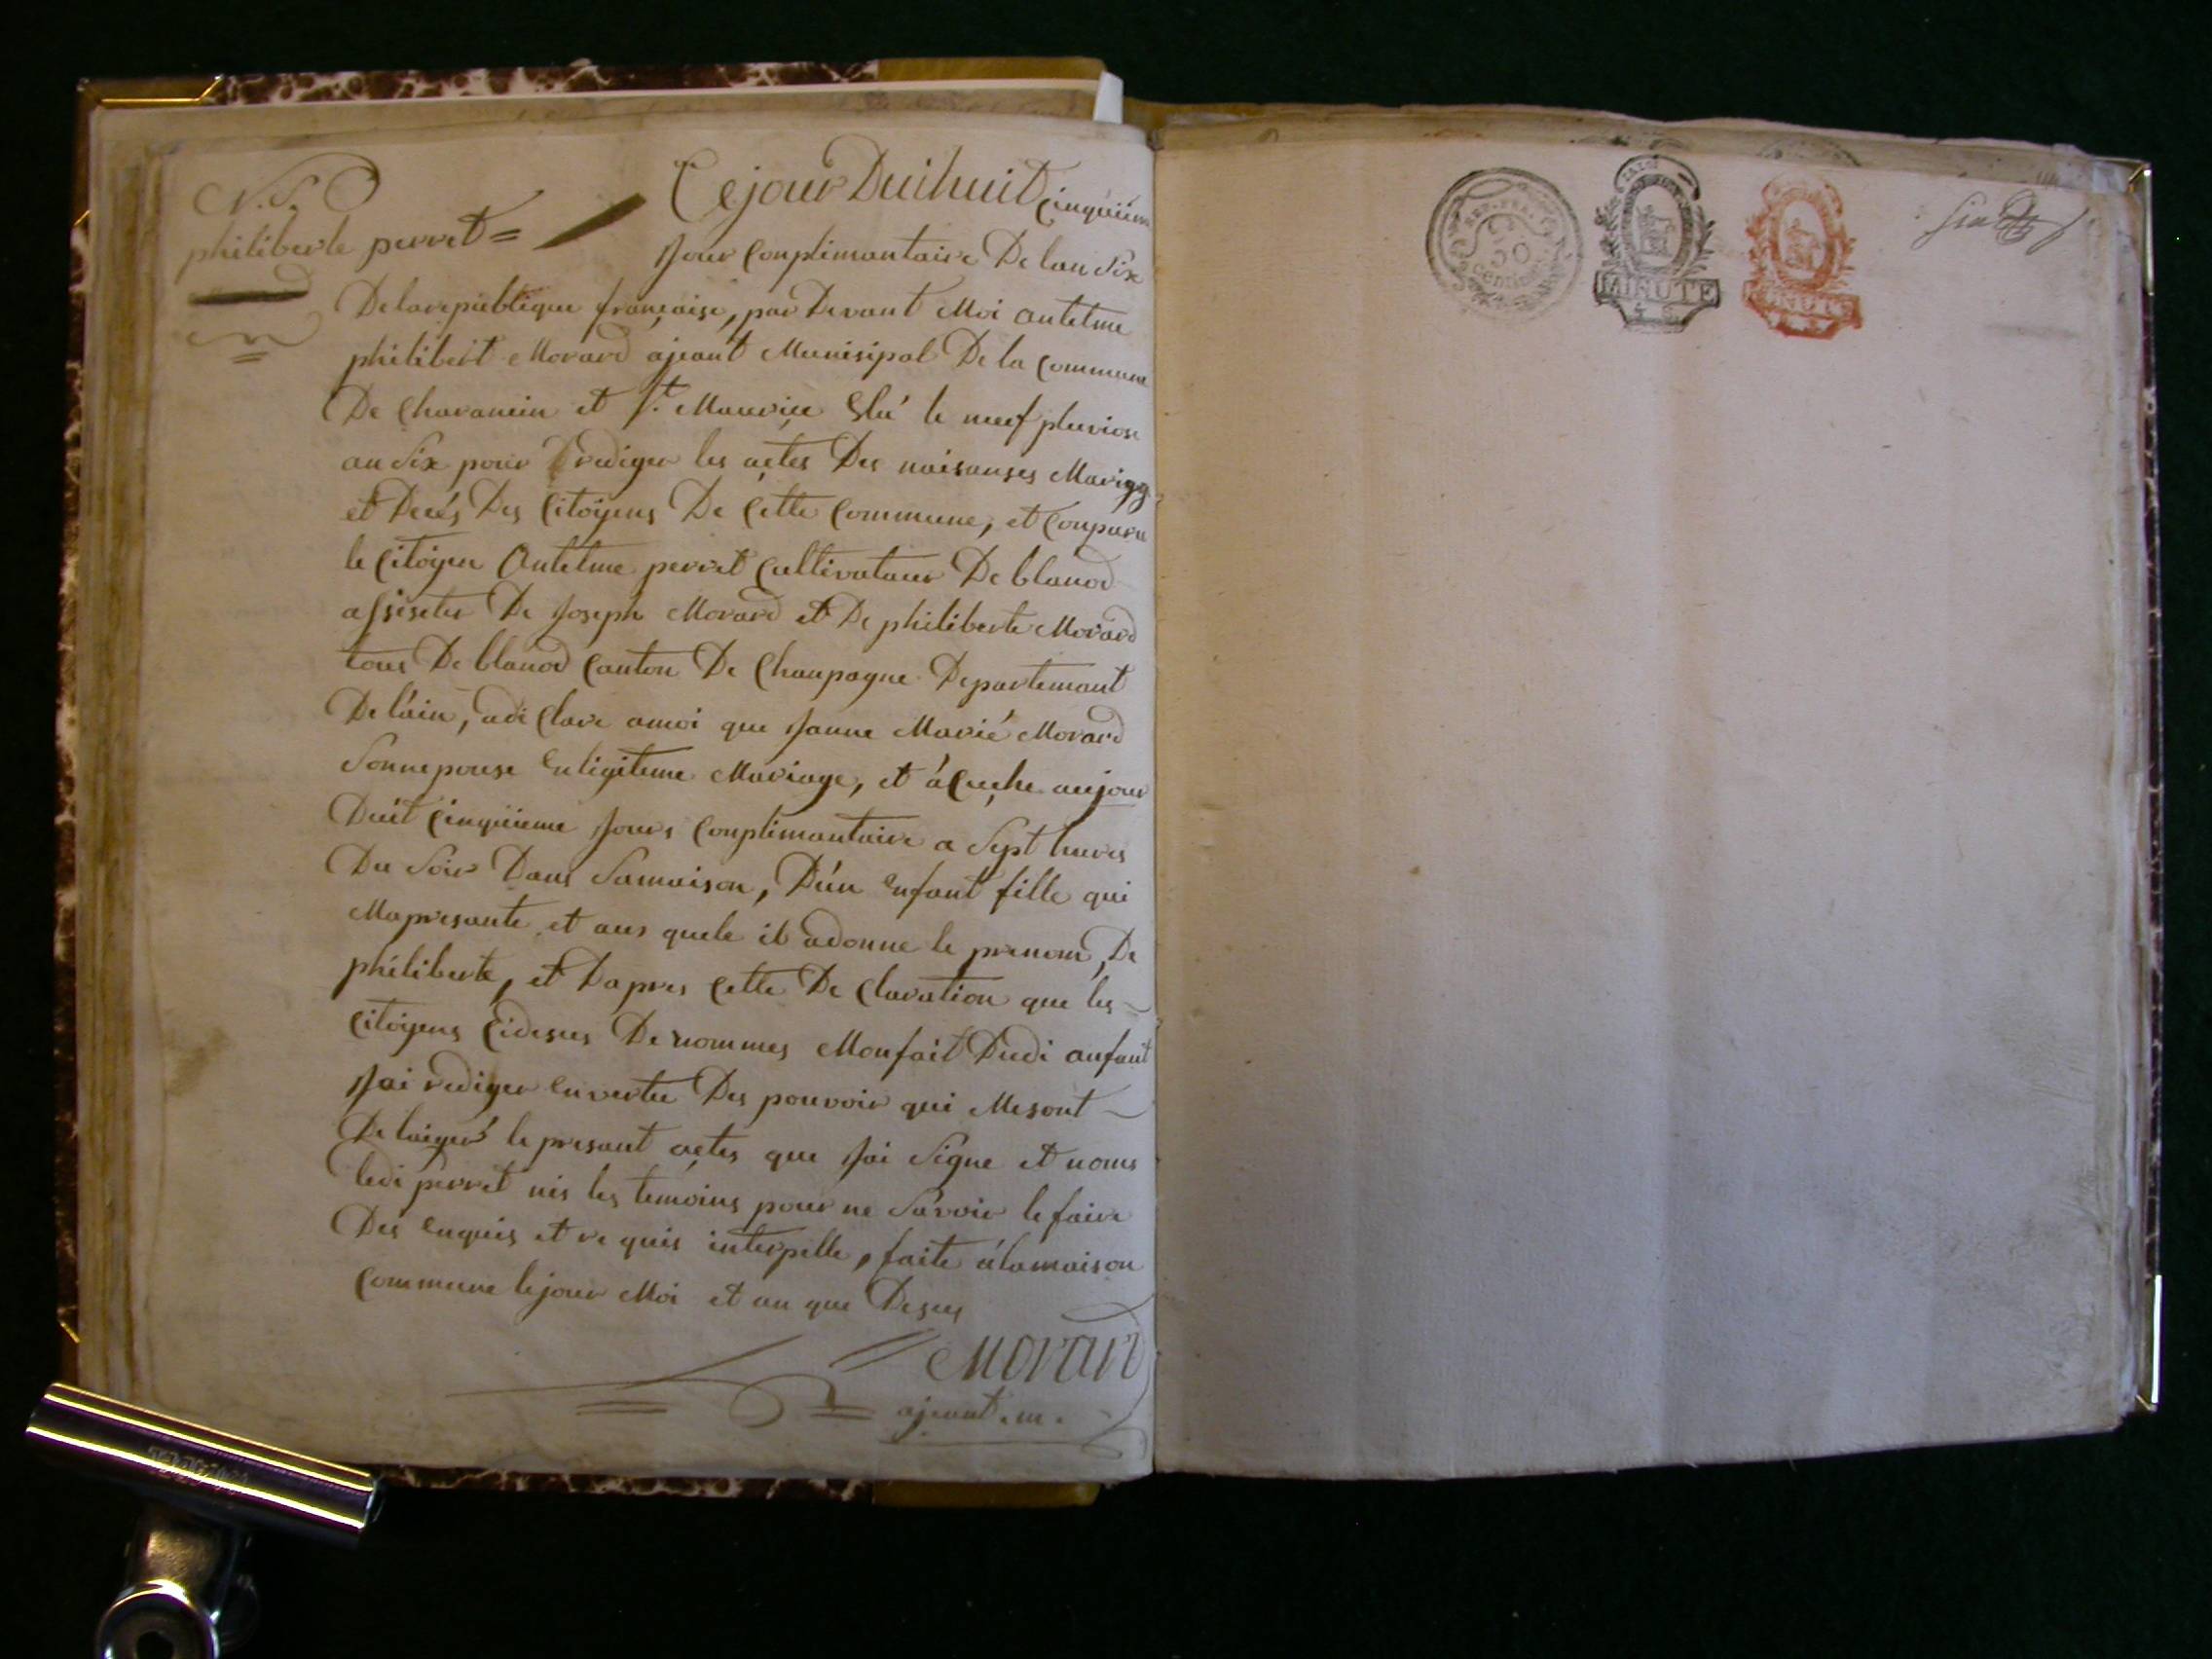 N. S.
philiberte perret =
Cejour Duihuit cinquiem
Jour Conplimantaire De lan Six
De larepublique française, par Devant Moi antelme
philibert Morard ajeant Munisipal De la Commune
De Charancin et St. Maurice Elu le neuf pluviose
an Six pour rediger les actes Des naisanses Mariages
et Decés Des Citoÿens De Cette Commune, et Conparu
le Citoÿen Antelme perret Cultivateur De blanod
assisster De Joseph Morard et De philiberte Morard
tous De blanod Canton De Chanpagne Departemant
De láin, adeClare amoi que Janne Marié Morard
Sonnepouse enligiteme Mariage, et áCuche aujour
Duit Cinquieme Jours Conplimantaire a Sept heures
Du Soir Dans Samaison, Dún enfant fille qui
Mapresante et aus quele il adonne le prenom, De
philiberte, et Dapres Cette DeClaration que les
Citoÿens Cidesus Denommes Monfait Dudi anfant
Jai rediger envertu Des pouvoir qui Mesont
Delaigué le presant actes que Jai Signe et noms
ledi perret nis les temoins pour ne Savoir lefaire
Des enquis et requis interpelle, faite álamaison
Commune lejour Moi et an que Desus
Morard
ajeant . m .
REP. FRA.
50
Centimes
MINUTE
MINUTE